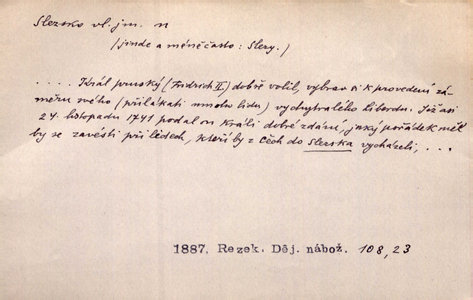 Slezsko vl. jm. n
(jinde a méně často: Slezy.)
.... Král pruský (Fridrich II.) dobře volil, vybrav si k provedení zá-
měru svého (přilákati mnoho lidu) vychytralého Liberdu. Již asi
24. listopadu 1741 podal on králi dobré zdání, jaký pořádek měl
by se zavésti při lidech, kteří by z Čech do Slezska vycházeli, ...
1887. Rezek. Děj. nábož. 108, 23